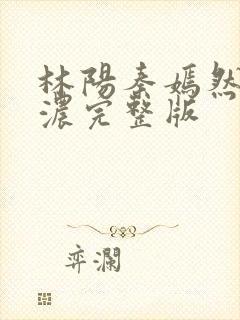 林陽秦嫣然
濃完整版
弈瀾